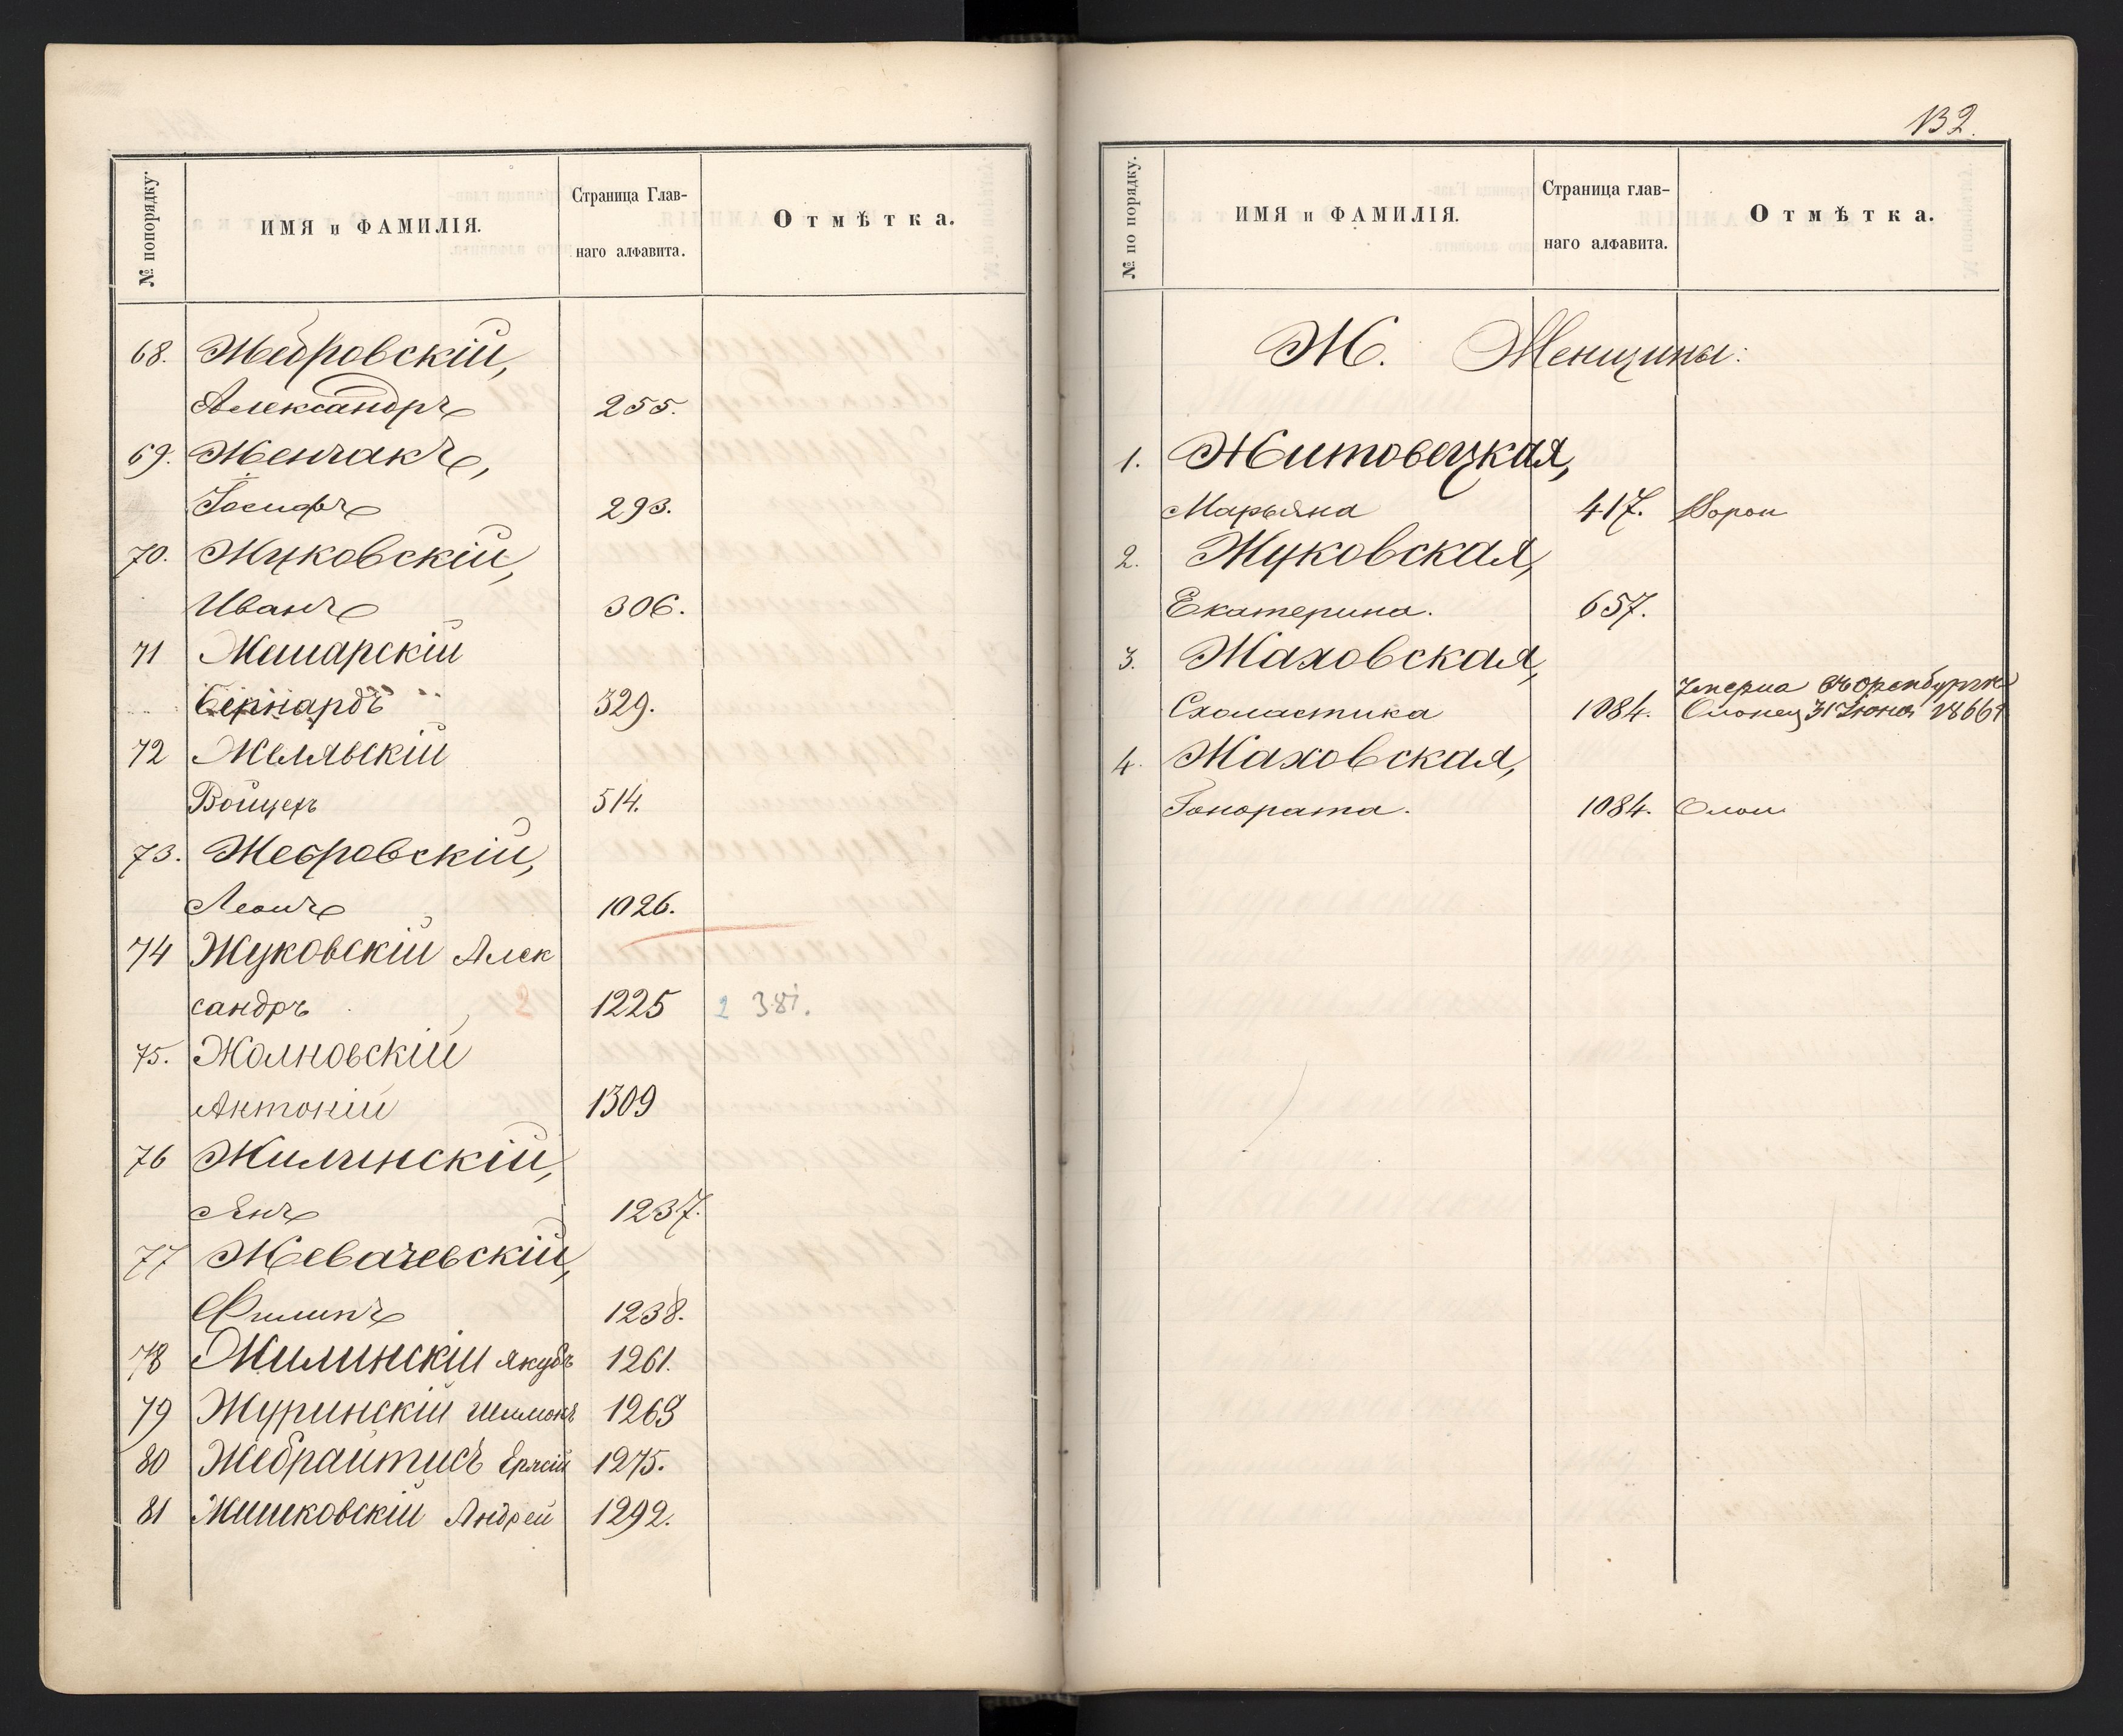 № попорядку.
ИМЯ и ФАМИЛІЯ.
Страница Глав-
наго алфавита.
Отмѣтка.
68. Жебровскій,
Александръ 255.
69. Женчакъ,
Іосифъ 293.
70. Жуковскій,
Иванъ 306.
71 Жешарскій
Бернардъ 329.
72
Войцехъ 514.
73. Жебровскій,
Леонъ 1026.
74 Жуковскій Алек
сандръ 1225 2 381.
75. Жолновскій
Антоній 1309
76 Жилинскій,
Янъ 1237.
77 Жевачевскій,
Филипъ 1238.
78 Жилинскій Якубъ 1261.
79 Журинскій Шимонъ 1269
80 Жебрайтисъ 1275.
81 Жишковскій Андрей 1292.
132.
№ по порядку.
ИМЯ и ФАМИЛІЯ.
Страница глав-
наго алфавита.
Отмѣтка.
Ж. Женщины:
1. Житовецкая,
Марьяна 417. Ворон
2. Жуковская,
Екатерина. 657.
3. Жаховская,
Умерла въ Оренбургѣ
Схоластика 1084. Олонец 31 Іюня 1866 г
4. Жаховская,
Гонората. 1084. Олон